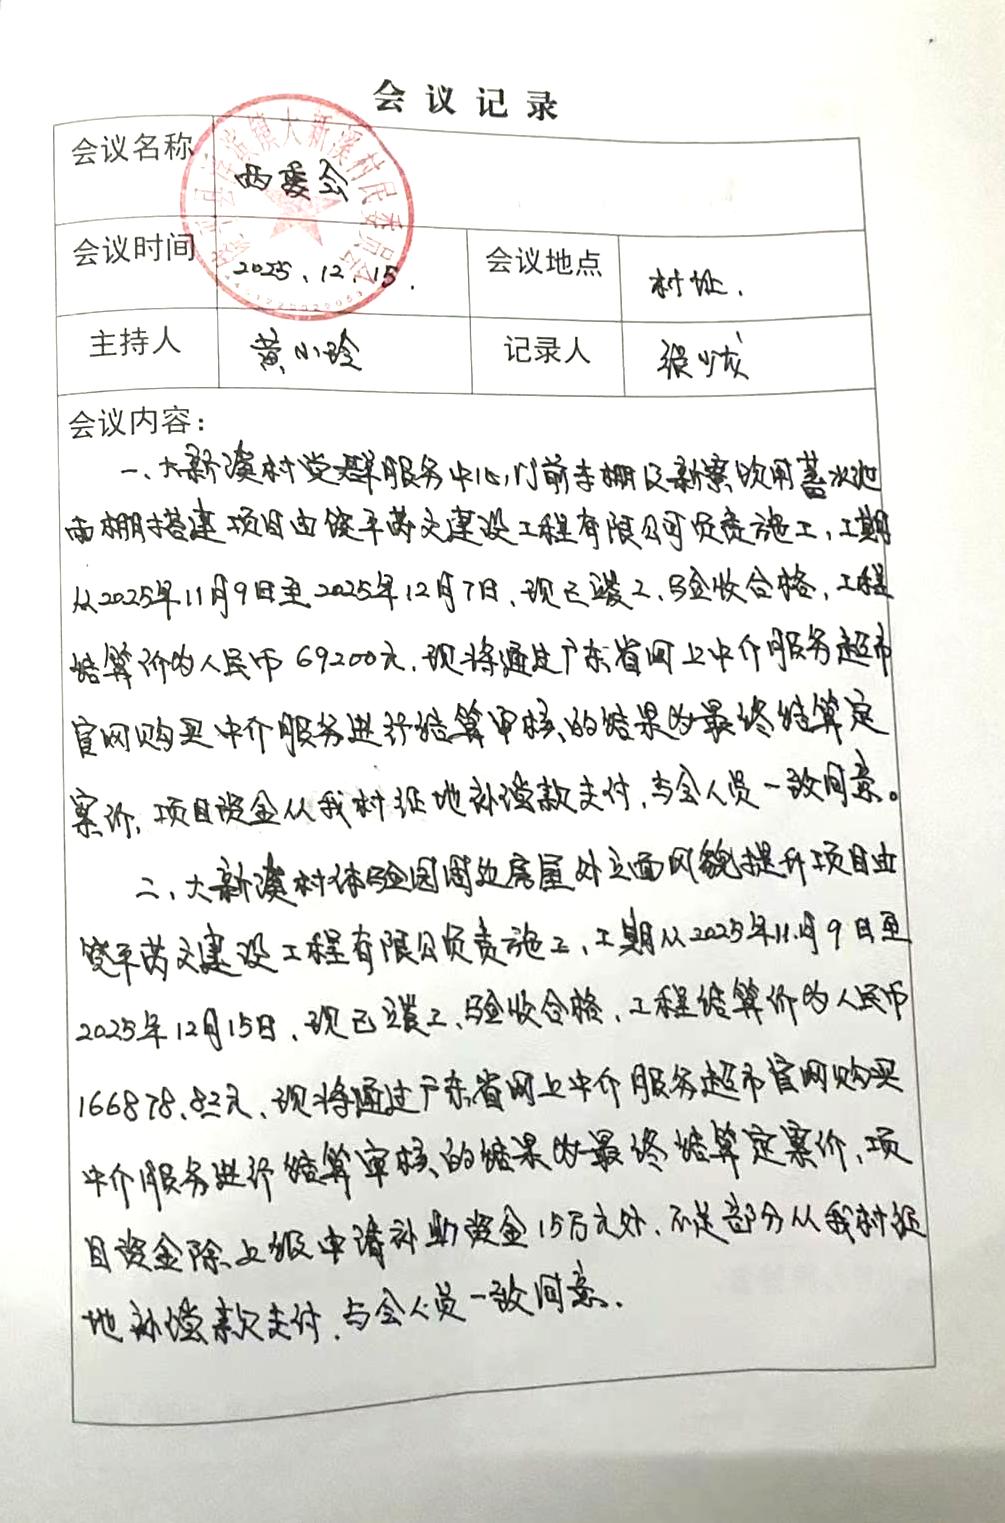 会议记录
会议名称 两委会
会议时间 2025.12.15. 会议地点 村址.
主持人 黄小玲 记录人 张少龙
会议内容：
一、大新溪村党群服务中心门前雨棚及新寮饮用蓄水池
雨棚搭建项目由饶平芮文建设工程有限公司负责施工,工期
从2025年11月9日至2025年12月7日,现已竣工、验收合格,工程
结算价为人民币69200元,现将通过广东省网上中介服务超市
官网购买中介服务进行结算审核的结果为最终结算定
案价,项目资金从我村征地补偿款支付,与会人员一致同意。
二、大新溪村体验园周边房屋外立面风貌提升项目由
饶平芮文建设工程有限公司负责施工,工期从2025年11月9日至
2025年12月15日,现已竣工、验收合格,工程结算价为人民币
166878.82元,现将通过广东省网上中介服务超市官网购买
中介服务进行结算审核的结果为最终结算定案价,项
目资金除上级申请补助资金15万元外,不足部分从我村征
地补偿款支付,与会人员一致同意.
镇大新溪村民委员会